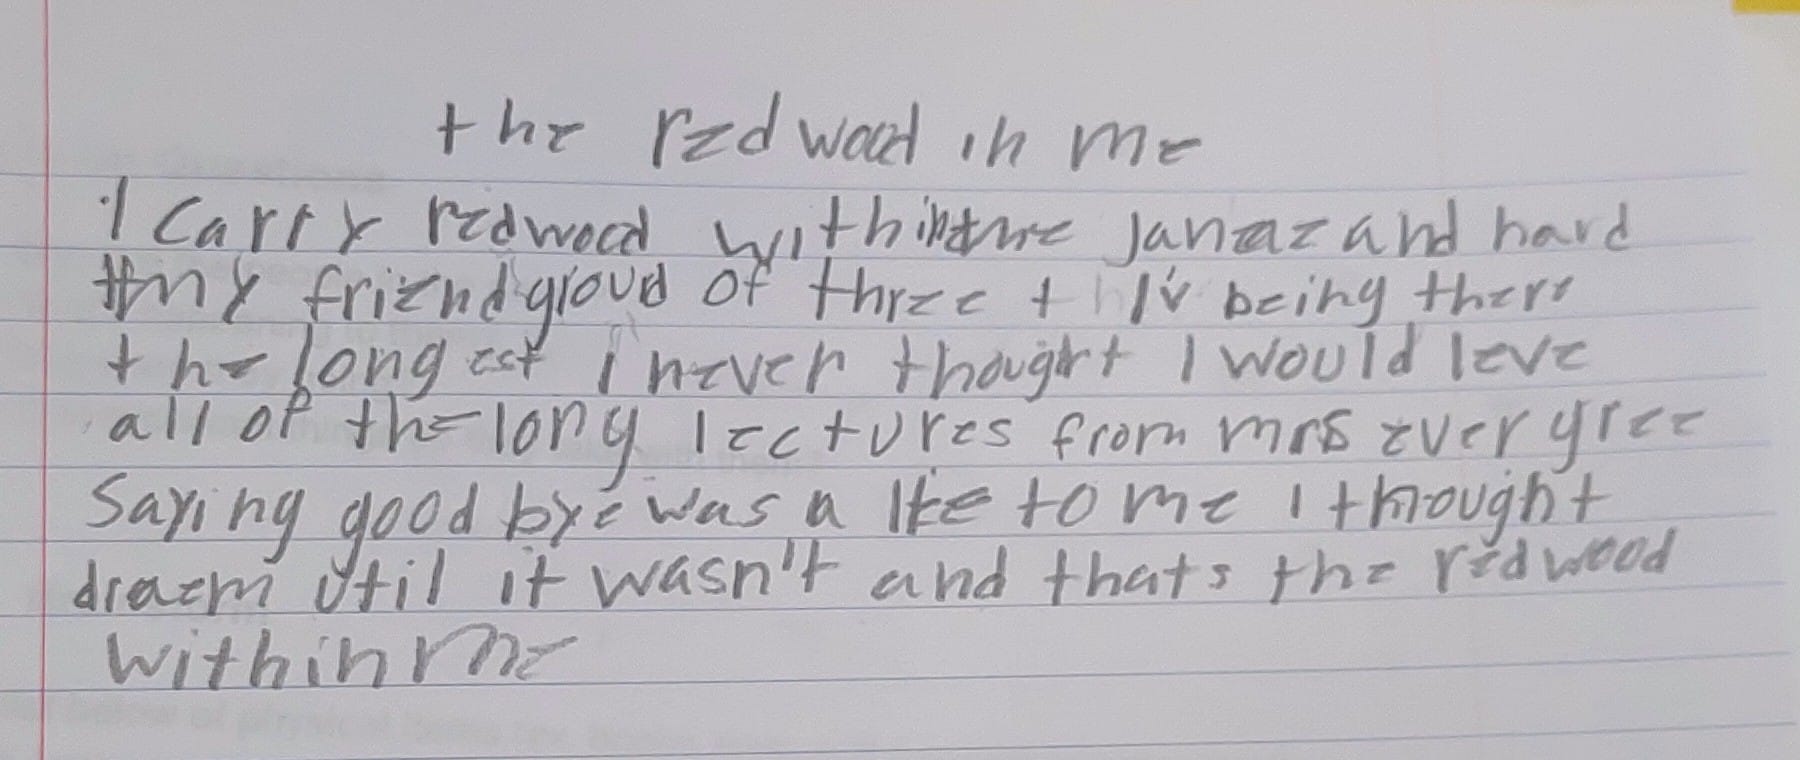 the redwood in me
I carry redwood within me janaz and hard
my friend groud of three I'v being there
the longest i never thought I would leve
all of the long lectures from mrs evergree
Saying good bye was a lie to me I thought
draem util it wasn't and thats the redwood
within me